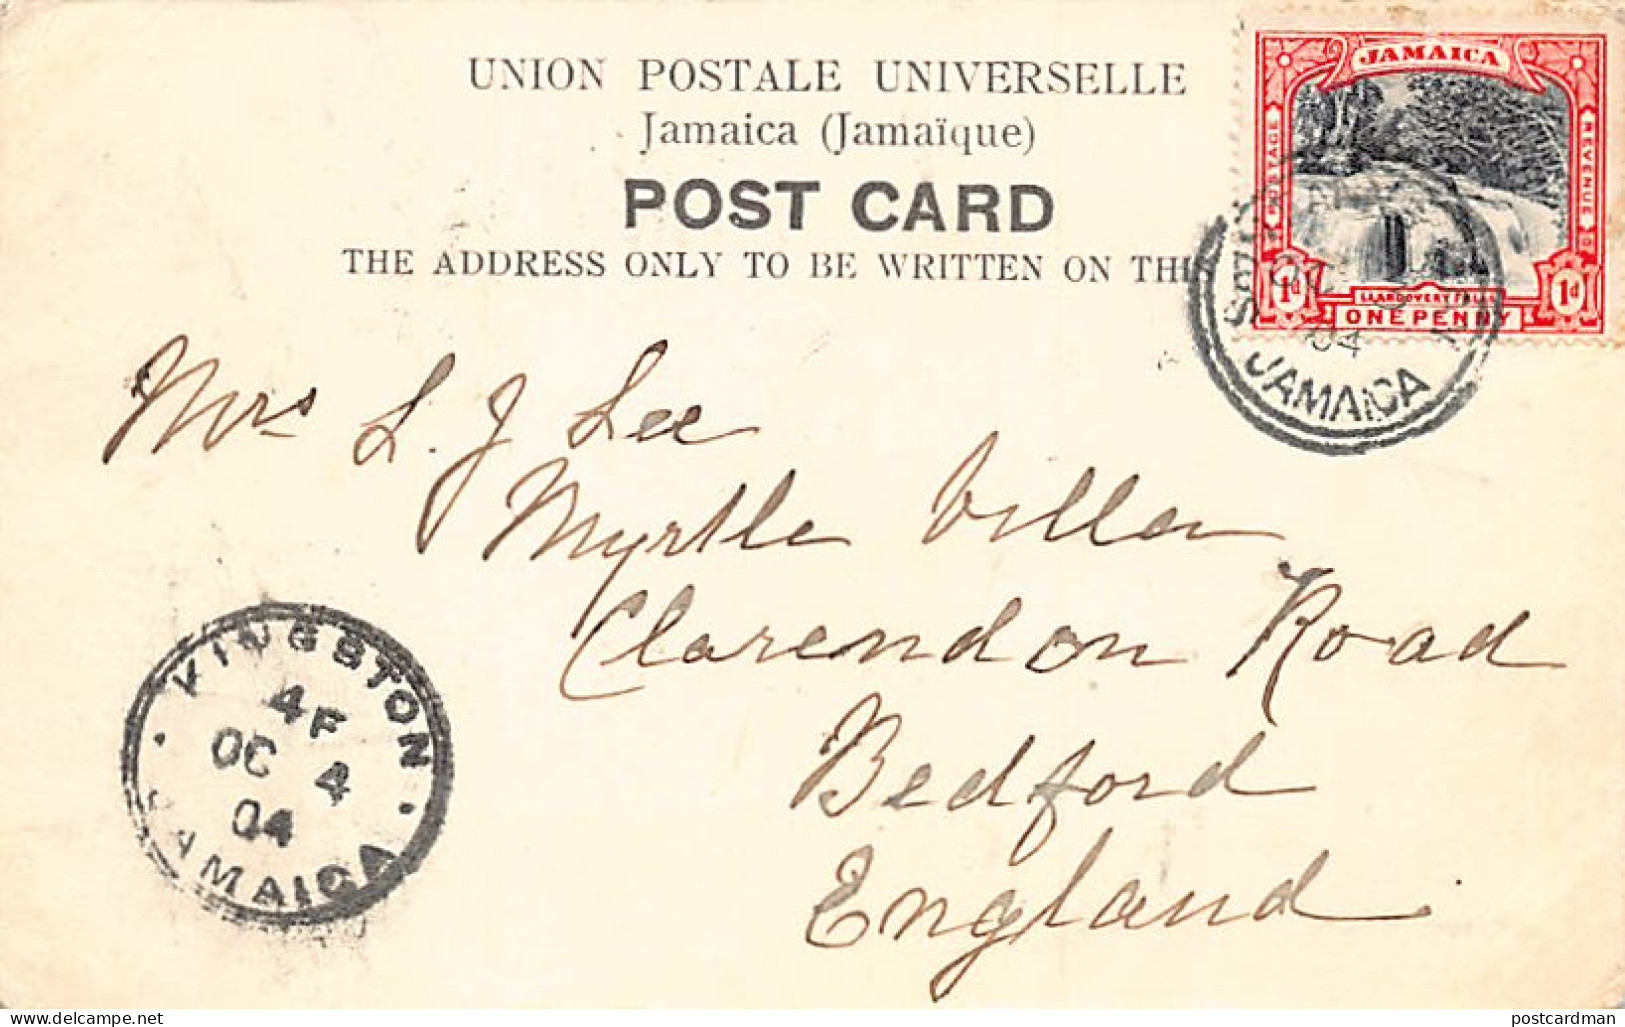 UNION POSTALE UNIVERSELLE
Jamaica (Jamaïque)
POST CARD
THE ADDRESS ONLY TO BE WRITTEN ON
JAMAICA
POSTAGE
REVENUE
1d
LLANDOVERY FALLS
1d
ONE PENNY
04
JAMAICA
Mrs L. J Lee
Myrtle Villa
Clarendon Road
Bedford
England
KINGSTON
4 F
OC 4
04
JAMAICA
www.delcampe.net
postcardman